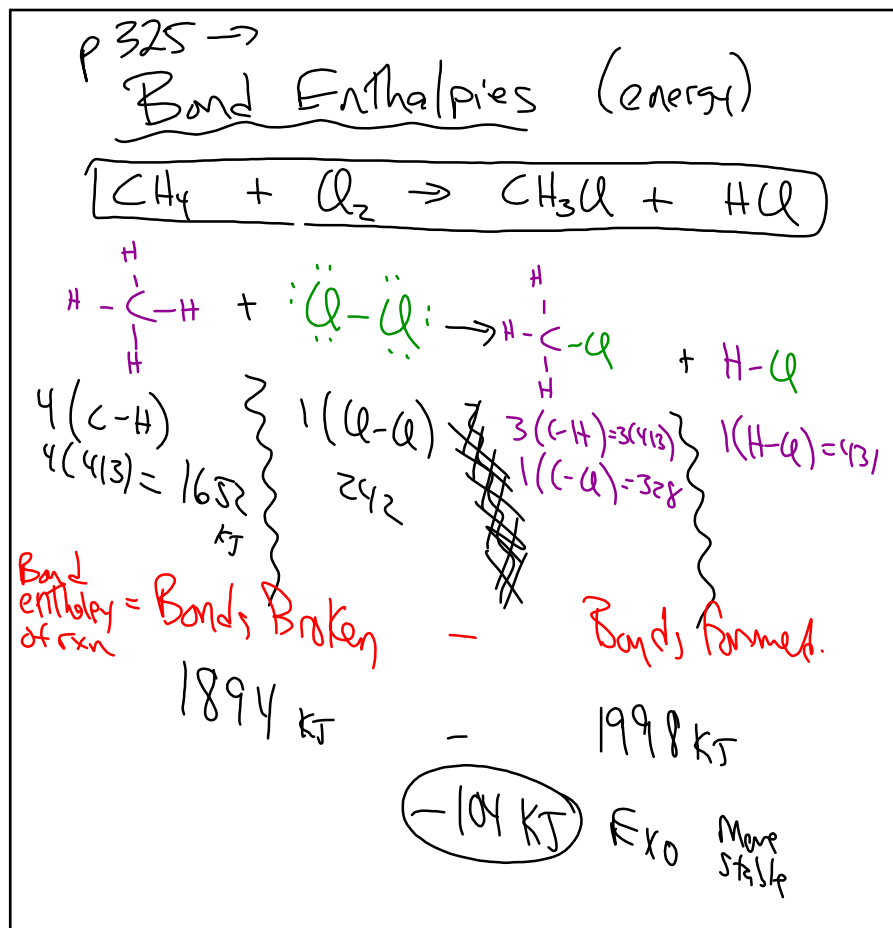 p 325 →
Bond Enthalpies (energy)
CH₄ + Cl₂ → CH₃Cl + HCl
H
H - C - H + :Cl - Cl: → H - C - Cl + H - Cl
H
H
H
4(C-H) 1(Cl-Cl) 3(C-H)=3(413) 1(H-Cl)=431
4(413)= 1652 KJ 242 1(C-Cl)=328
Bond enthalpy of rxn = Bonds Broken - Bonds Formed.
1894 KJ - 1998 KJ
-104 KJ Exo More stable